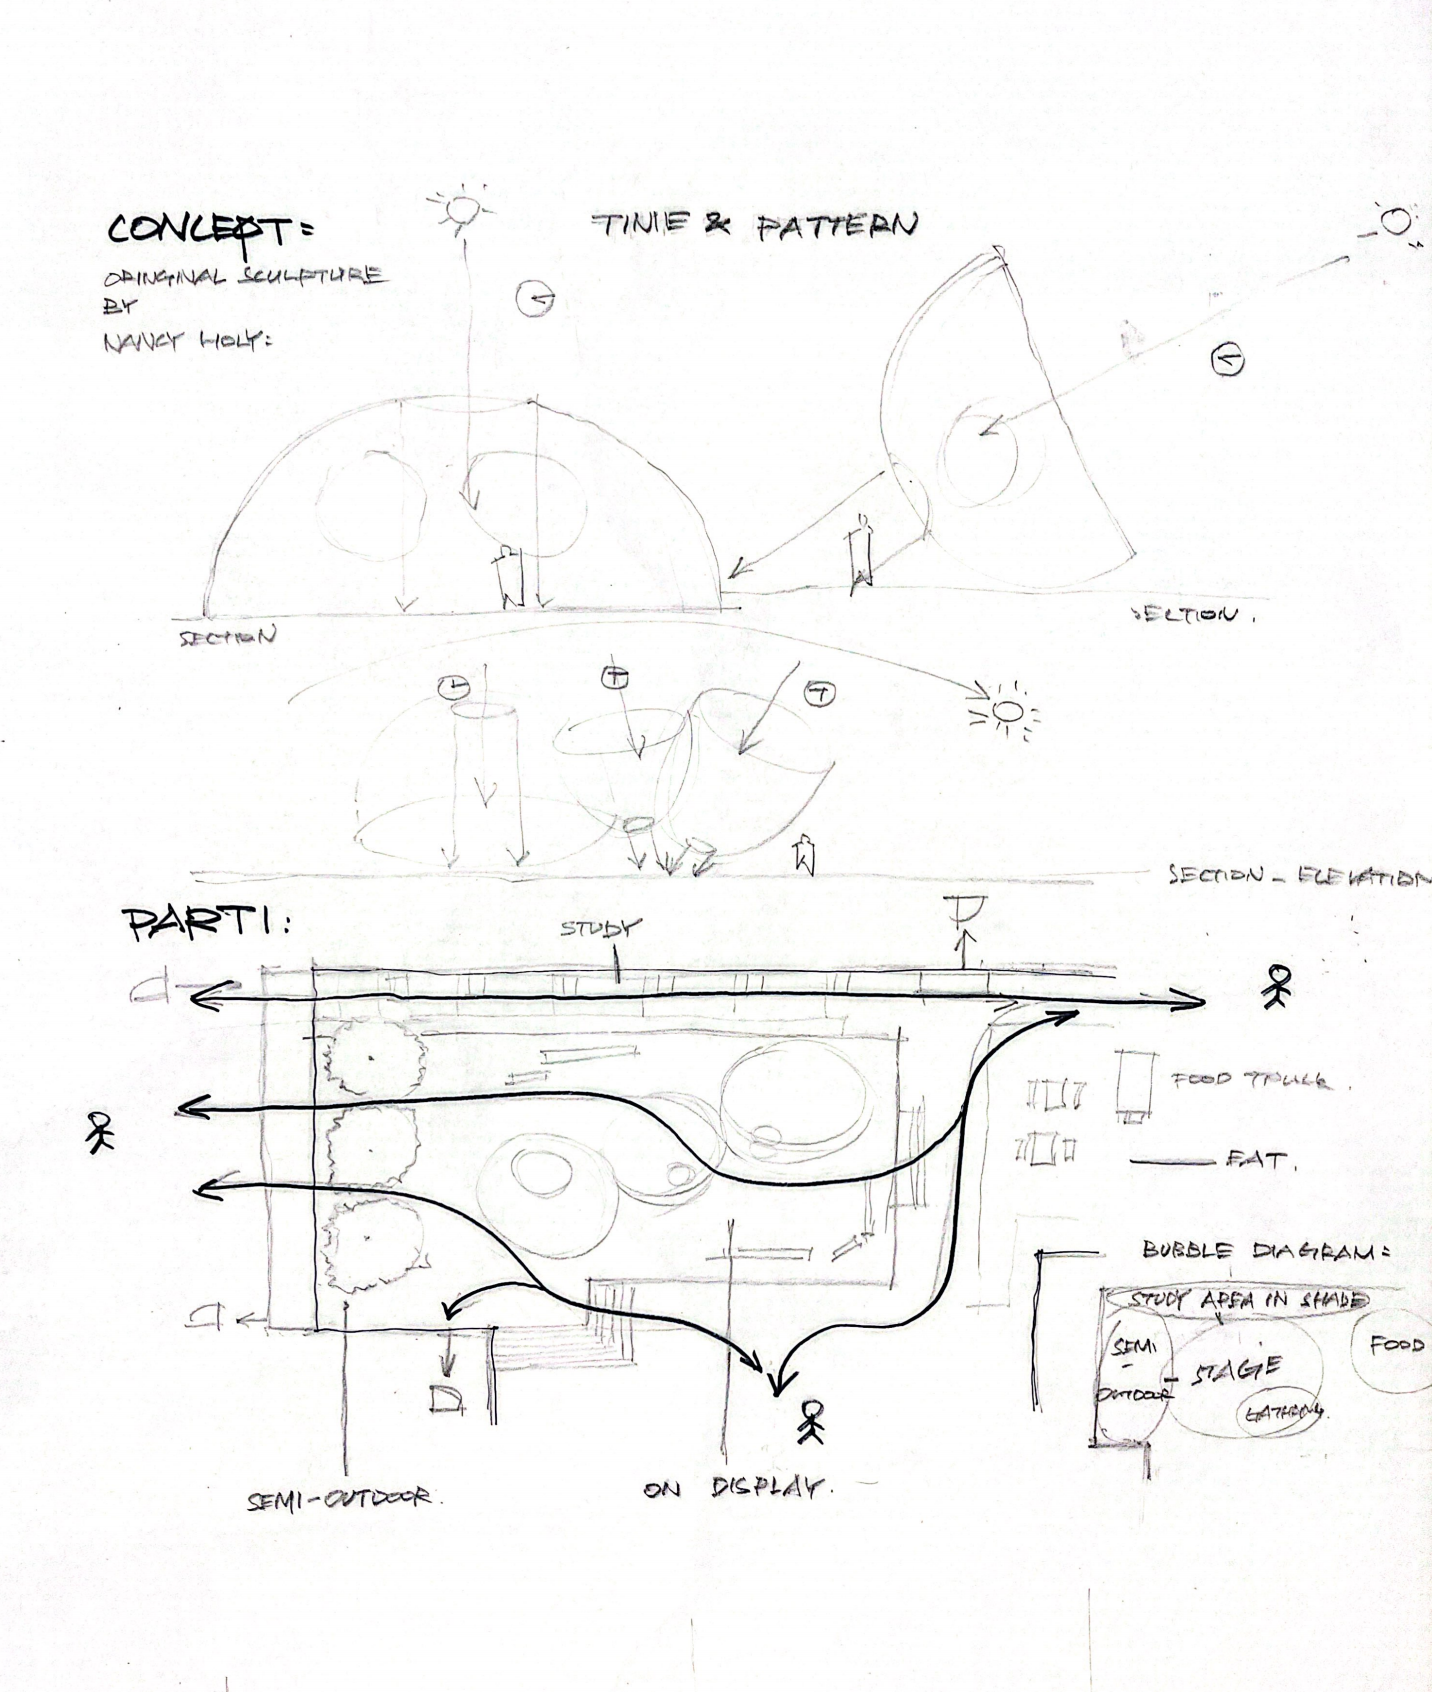 CONCEPT:
TIME & PATTERN
ORINGINAL SCULPTURE
BY
NANCY HOLY:
SECTION
SECTION.
SECTION - ELEVATION
PART1:
STUDY
FOOD TRUCK.
EAT.
BUBBLE DIAGRAM:
STUDY AREA IN SHADE
SEMI
-
OUTDOOR
STAGE
FOOD
SEMI-OUTDOOR.
ON DISPLAY.